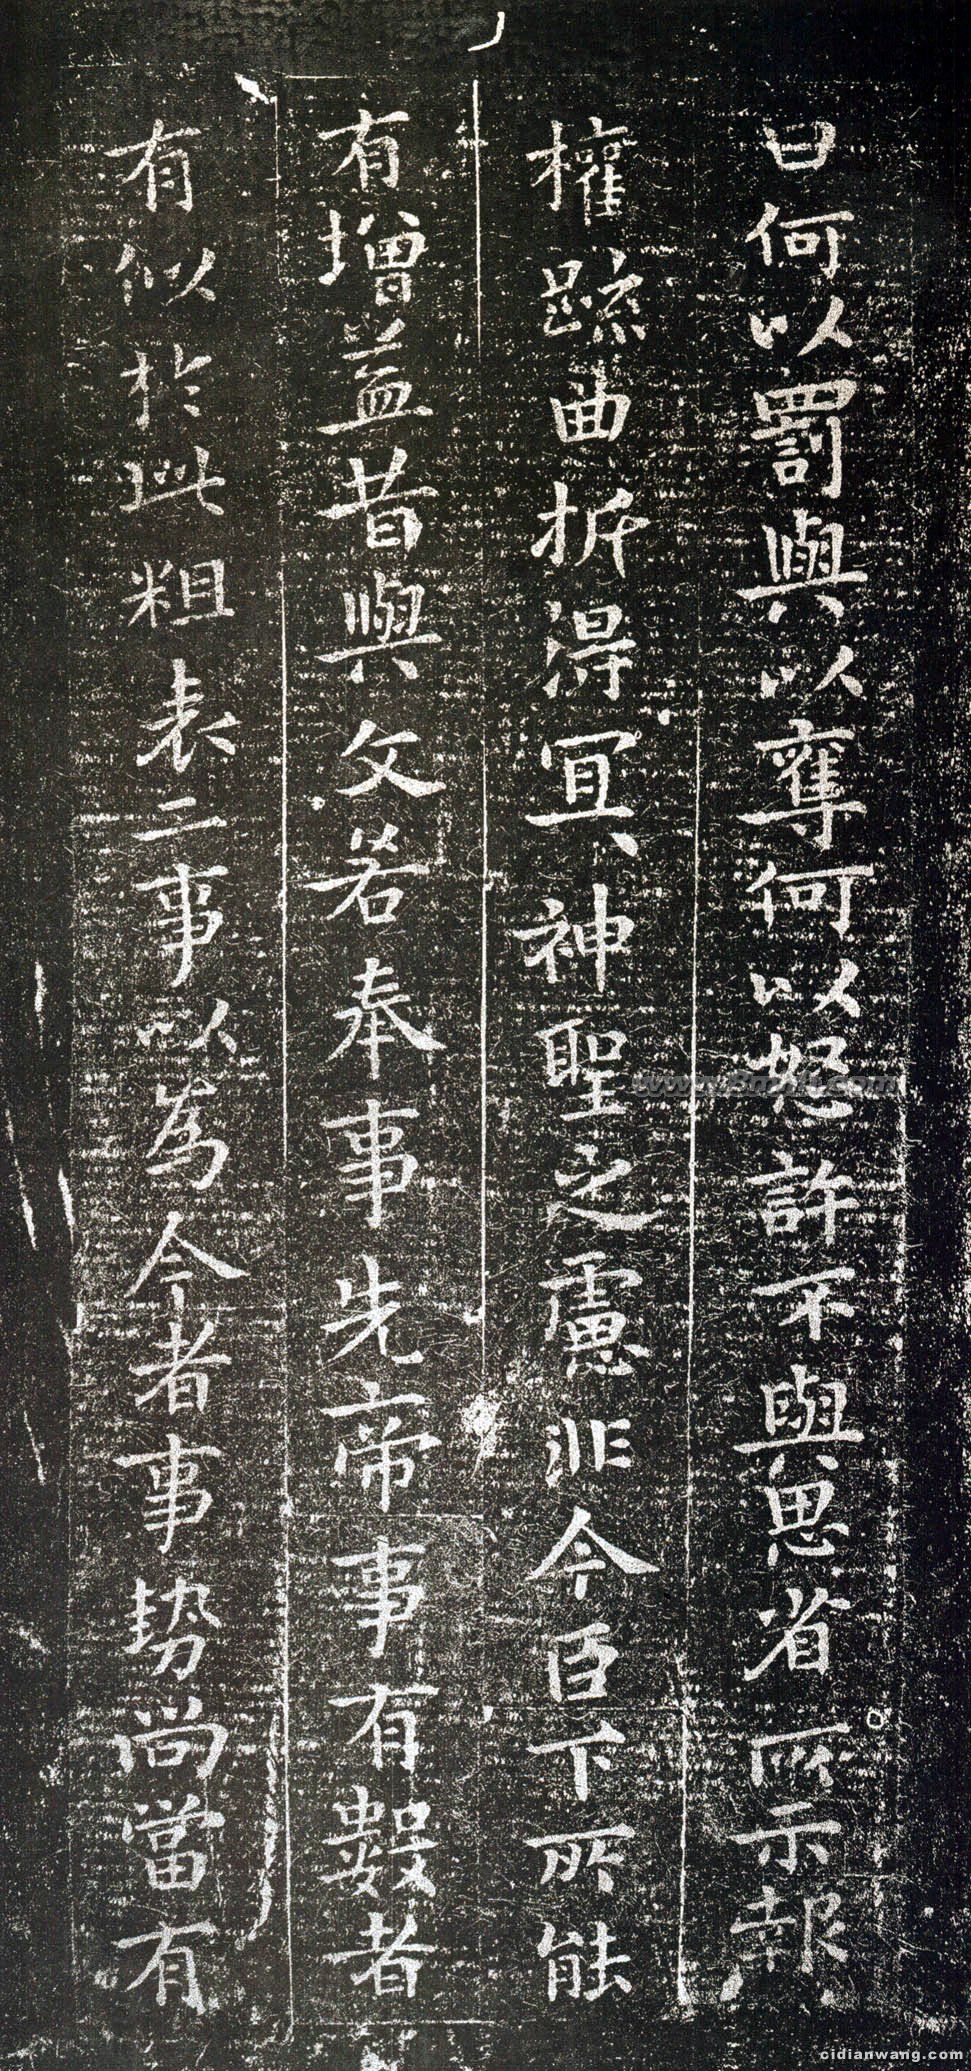 曰何以罰與以奪何以怒許不與思省所示報
權䟽曲折得冝、神聖之慮非今臣下所能
有增益昔與文若奉事先帝事有數者
有似於此粗表二事以為今者事勢尚當有
cidianwang.com